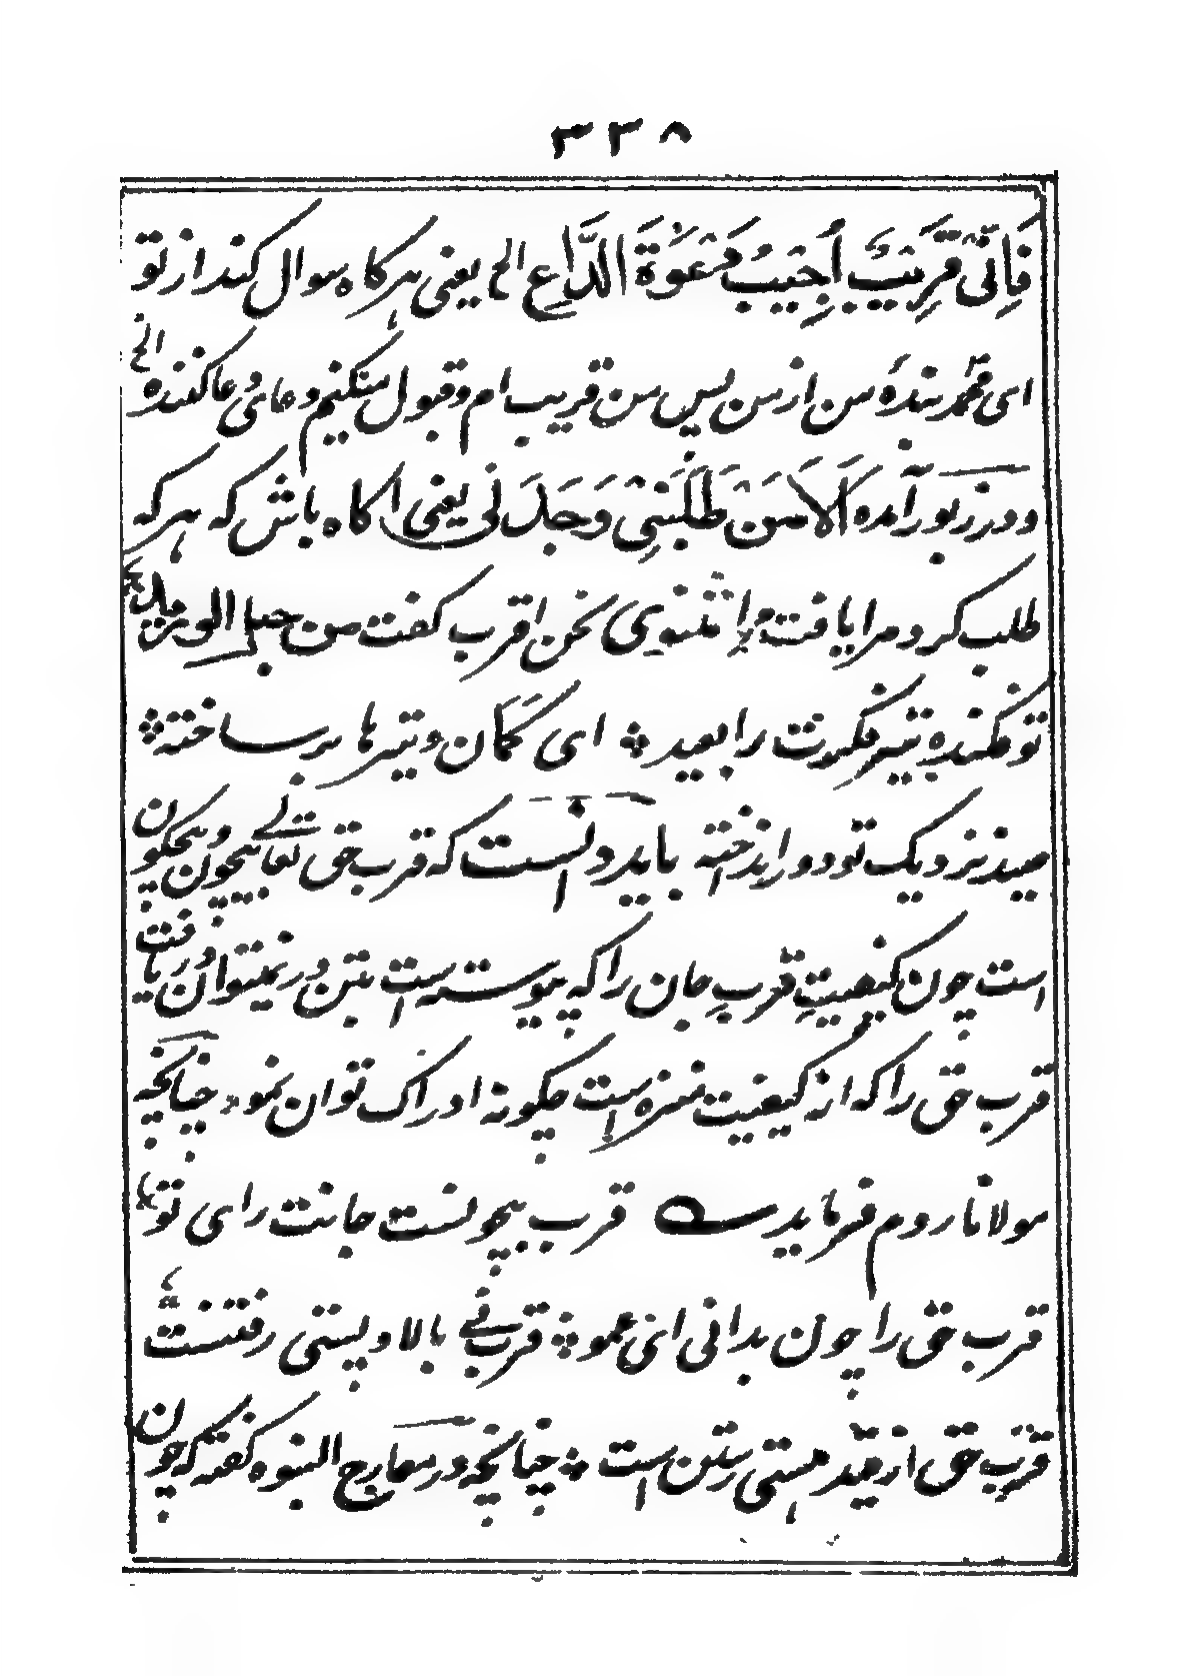 ۳۳۸
فَاِنّی قَرِیْبٌ اُجِیْبُ دَعْوَةَ الدَّاعِ الخ یعنی هرکاه سوال کند از تو
ای محمد بندهٔ من از من پس من قریب ام و قبول میکنیم دعای دعا کننده الخ
و در زبور آمده اَلَا مَنْ طَلَبَنِیْ وَجَدَنِیْ یعنی اکاه باش که هر که
طلب کرد مرا یافت مثنوی نحن اقرب کفت من حبل الورید
تو فکنده تیر فکرت را بعید ؞ ای کمان و تیرها بر ساخته ؞
صید نزدیک تو دور انداخته باید دانست که قرب حق تعالے بیچون و بیچکون
است چون کیفیتِ قربِ جان را که پیوسته است بتن در نمیتوان دریافت
قرب حق را که از کیفیت منزه است چکونه ادراک توان نمود چنانچه
مولانا روم فرماید قرب بیچونست جانت را ای تو
قرب حق را چون بدانی ای عمو ؞ قرب نے بالا و پستی رفتنست
قرب حق از قید هستی رستن است ؞ چنانچه در معارج النبوه کفته که چون